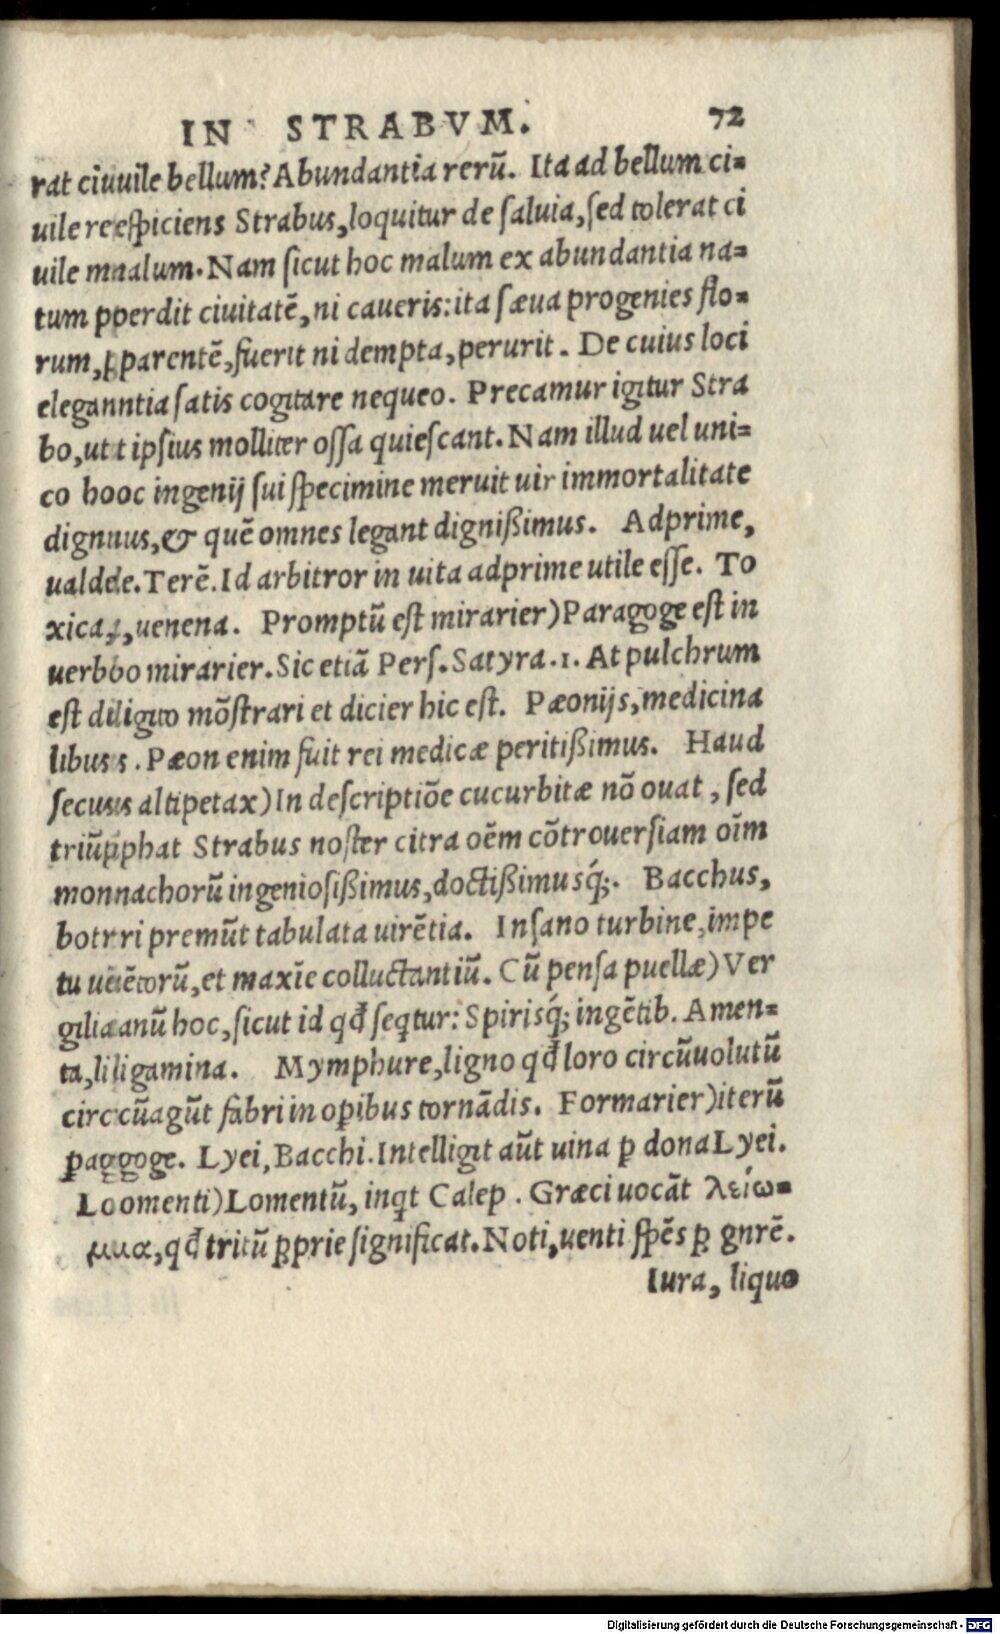 IN STRABVM. 72
rat ciuuile bellum? Abundantia rerū. Ita ad bellum ci=
uile reespiciens Strabus, loquitur de saluia, sed tolerat ci
uile maalum. Nam sicut hoc malum ex abundantia na=
tum pperdit ciuitatē, ni caueris: ita sæua progenies flo=
rum, ꝑparentē, fuerit ni dempta, perurit. De cuius loci
eleganntia satis cogitare nequeo. Precamur igitur Stra
bo, utt ipsius molliter ossa quiescant. Nam illud uel uni=
co hooc ingenij sui specimine meruit uir immortalitate
dignuus, & quē omnes legant dignißimus. Adprime,
ualdde. Terē. Id arbitror in uita adprime utile esse. To
xica, uenena. Promptū est mirarier) Paragoge est in
uerbbo mirarier. Sic etiā Pers. Satyra. 1. At pulchrum
est diligito mōstrari et dicier hic est. Pæonijs, medicina
libus s. Pæon enim fuit rei medicæ peritißimus. Haud
secusis altipetax) In descriptiōe cucurbitæ nō ouat, sed
triūpphat Strabus noster citra oēm cōtrouersiam oīm
monnachorū ingeniosißimus, doctißimusq́;. Bacchus,
botrri premūt tabulata uirētia. Insano turbine, impe
tu uēētorū, et maxīe colluctantiū. Cū pensa puellæ) Ver
giliaanū hoc, sicut id qđ seqtur: Spirisq́; ingētib. Amen=
ta, liligamina. Mymphure, ligno qđ loro circūuolutū
circcūagūt fabri in opibus tornādis. Formarier) iterū
ꝑaggoge. Lyei, Bacchi. Intelligit aūt uina ꝑ dona Lyei.
Loomenti) Lomentū, inqt Calep. Græci uocāt λείω=
μμα, qđ tritū ꝓprie significat. Noti, uenti spēs ꝓ gnrē.
Iura, liquo
Digitalisierung gefördert durch die Deutsche Forschungsgemeinschaft - DFG